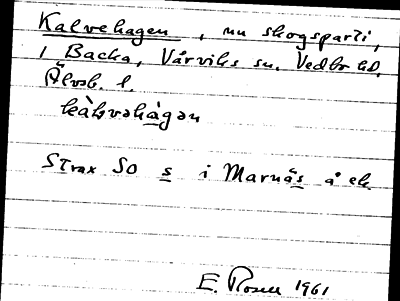 Kalvehagen, nu skogsparti,
i Backa, Vårviks sn. Vedbo hd.
Älvsb. l.
kàlvəhàgən
Strax SO s i Marnäs å ek
E. Rosell 1961